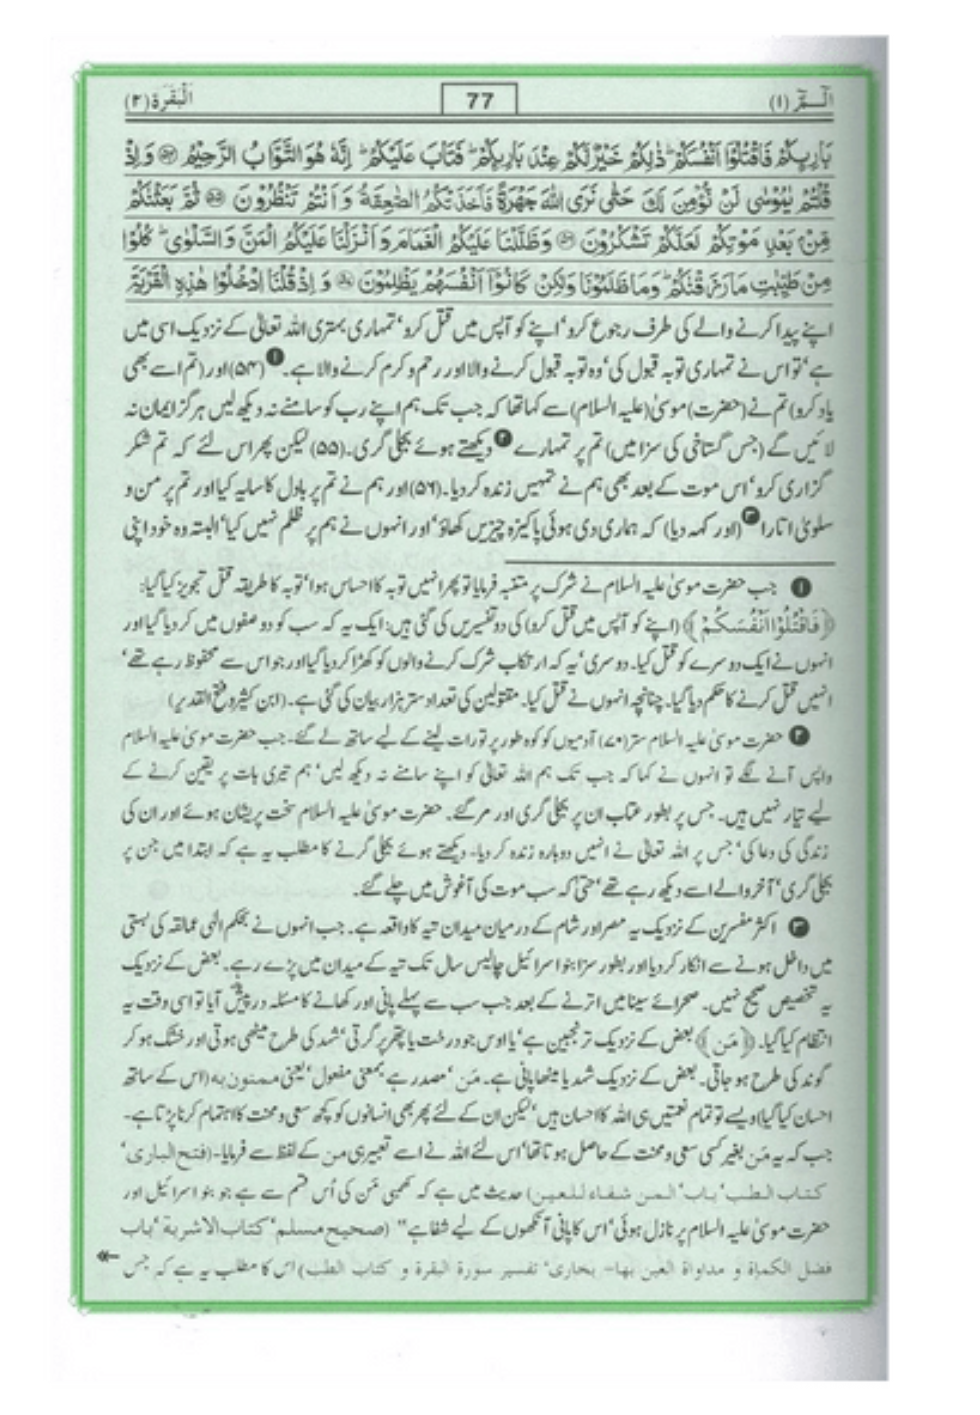 الٓمّٓ (۱)
77
اَلْبَقَرَة (۲)
بَارِئِكُمْ فَاقْتُلُوْٓا اَنْفُسَكُمْ ؕ ذٰلِكُمْ خَيْرٌ لَّكُمْ عِنْدَ بَارِئِكُمْ ؕ فَتَابَ عَلَيْكُمْ ؕ اِنَّهٗ هُوَ التَّوَّابُ الرَّحِيْمُ ۝۵۴ وَاِذْ
قُلْتُمْ يٰمُوْسٰى لَنْ نُّؤْمِنَ لَكَ حَتّٰى نَرَى اللّٰهَ جَهْرَةً فَاَخَذَتْكُمُ الصّٰعِقَةُ وَاَنْتُمْ تَنْظُرُوْنَ ۝۵۵ ثُمَّ بَعَثْنٰكُمْ
مِّنْۢ بَعْدِ مَوْتِكُمْ لَعَلَّكُمْ تَشْكُرُوْنَ ۝۵۶ وَظَلَّلْنَا عَلَيْكُمُ الْغَمَامَ وَاَنْزَلْنَا عَلَيْكُمُ الْمَنَّ وَالسَّلْوٰى ؕ كُلُوْا
مِنْ طَيِّبٰتِ مَا رَزَقْنٰكُمْ ؕ وَمَا ظَلَمُوْنَا وَلٰكِنْ كَانُوْٓا اَنْفُسَهُمْ يَظْلِمُوْنَ ۝۵۷ وَاِذْ قُلْنَا ادْخُلُوْا هٰذِهِ الْقَرْيَةَ
اپنے پیدا کرنے والے کی طرف رجوع کرو‘ اپنے کو آپس میں قتل کرو‘ تمہاری بہتری اللہ تعالیٰ کے نزدیک اسی میں
ہے‘ تو اس نے تمہاری توبہ قبول کی‘ وہ توبہ قبول کرنے والا اور رحم و کرم کرنے والا ہے۔ ❶ (۵۴) اور (تم اسے بھی
یاد کرو) تم نے (حضرت) موسیٰ (علیہ السلام) سے کہا تھا کہ جب تک ہم اپنے رب کو سامنے نہ دیکھ لیں ہرگز ایمان نہ
لائیں گے (جس گستاخی کی سزا میں) تم پر تمہارے ❷ دیکھتے ہوئے بجلی گری۔ (۵۵) لیکن پھر اس لئے کہ تم شکر
گزاری کرو‘ اس موت کے بعد بھی ہم نے تمہیں زندہ کر دیا۔ (۵۶) اور ہم نے تم پر بادل کا سایہ کیا اور تم پر من و
سلویٰ اتارا ❸ (اور کہہ دیا) کہ ہماری دی ہوئی پاکیزہ چیزیں کھاؤ‘ اور انہوں نے ہم پر ظلم نہیں کیا‘ البتہ وہ خود اپنی
❶ جب حضرت موسیٰ علیہ السلام نے شرک پر متنبہ فرمایا تو پھر انہیں توبہ کا احساس ہوا‘ توبہ کا طریقہ قتل تجویز کیا گیا:
﴿فَاقْتُلُوْٓا اَنْفُسَكُمْ﴾ (اپنے کو آپس میں قتل کرو) کی دو تفسیریں کی گئی ہیں: ایک یہ کہ سب کو دو صفوں میں کر دیا گیا اور
انہوں نے ایک دوسرے کو قتل کیا۔ دوسری‘ یہ کہ ارتکاب شرک کرنے والوں کو کھڑا کر دیا گیا اور جو اس سے محفوظ رہے تھے‘
انہیں قتل کرنے کا حکم دیا گیا۔ چنانچہ انہوں نے قتل کیا۔ مقتولین کی تعداد ستر ہزار بیان کی گئی ہے۔ (ابن کثیر و فتح القدیر)
❷ حضرت موسیٰ علیہ السلام ستر (۷۰) آدمیوں کو کوہ طور پر تورات لینے کے لیے ساتھ لے گئے۔ جب حضرت موسیٰ علیہ السلام
واپس آنے لگے تو انہوں نے کہا کہ جب تک ہم اللہ تعالیٰ کو اپنے سامنے نہ دیکھ لیں‘ ہم تیری بات پر یقین کرنے کے
لیے تیار نہیں ہیں۔ جس پر بطور عتاب ان پر بجلی گری اور مر گئے۔ حضرت موسیٰ علیہ السلام سخت پریشان ہوئے اور ان کی
زندگی کی دعا کی‘ جس پر اللہ تعالیٰ نے انہیں دوبارہ زندہ کر دیا۔ دیکھتے ہوئے بجلی گرنے کا مطلب یہ ہے کہ ابتدا میں جن پر
بجلی گری‘ آخر والے اسے دیکھ رہے تھے‘ حتیٰ کہ سب موت کی آغوش میں چلے گئے۔
❸ اکثر مفسرین کے نزدیک یہ مصر اور شام کے درمیان میدان تیہ کا واقعہ ہے۔ جب انہوں نے بحکم الٰہی عمالقہ کی بستی
میں داخل ہونے سے انکار کر دیا اور بطور سزا بنو اسرائیل چالیس سال تک تیہ کے میدان میں پڑے رہے۔ بعض کے نزدیک
یہ تخصیص صحیح نہیں۔ صحرائے سینا میں اترنے کے بعد جب سب سے پہلے پانی اور کھانے کا مسئلہ درپیش آیا تو اسی وقت یہ
انتظام کیا گیا۔ ﴿مَن﴾ بعض کے نزدیک ترنجبین ہے‘ یا اوس جو درخت یا پتھر پر گرتی‘ شہد کی طرح میٹھی ہوتی اور خشک ہو کر
گوند کی طرح ہو جاتی۔ بعض کے نزدیک شہد یا میٹھا پانی ہے۔ مَن‘ مصدر ہے بمعنی مفعول‘ یعنی ممنون بہ (اس کے ساتھ
احسان کیا گیا) ویسے تو تمام نعمتیں ہی اللہ کا احسان ہیں‘ لیکن ان کے لئے پھر بھی انسانوں کو کچھ سعی و محنت کا اہتمام کرنا پڑتا ہے۔
جب کہ یہ مَن بغیر کسی سعی و محنت کے حاصل ہوتا تھا‘ اس لئے اللہ نے اسے تعبیر ہی من کے لفظ سے فرمایا۔ (فتح الباری‘
کتاب الطب‘ باب‘ المن شفاء للعین) حدیث میں ہے کہ کھمبی مَن کی اُس قسم سے ہے جو بنو اسرائیل اور
حضرت موسیٰ علیہ السلام پر نازل ہوئی‘ اس کا پانی آنکھوں کے لیے شفا ہے" (صحیح مسلم‘ کتاب الاشربة‘ باب
فضل الكمأة و مداواة العین بها۔ بخاری‘ تفسیر سورة البقرة و کتاب الطب) اس کا مطلب یہ ہے کہ جس